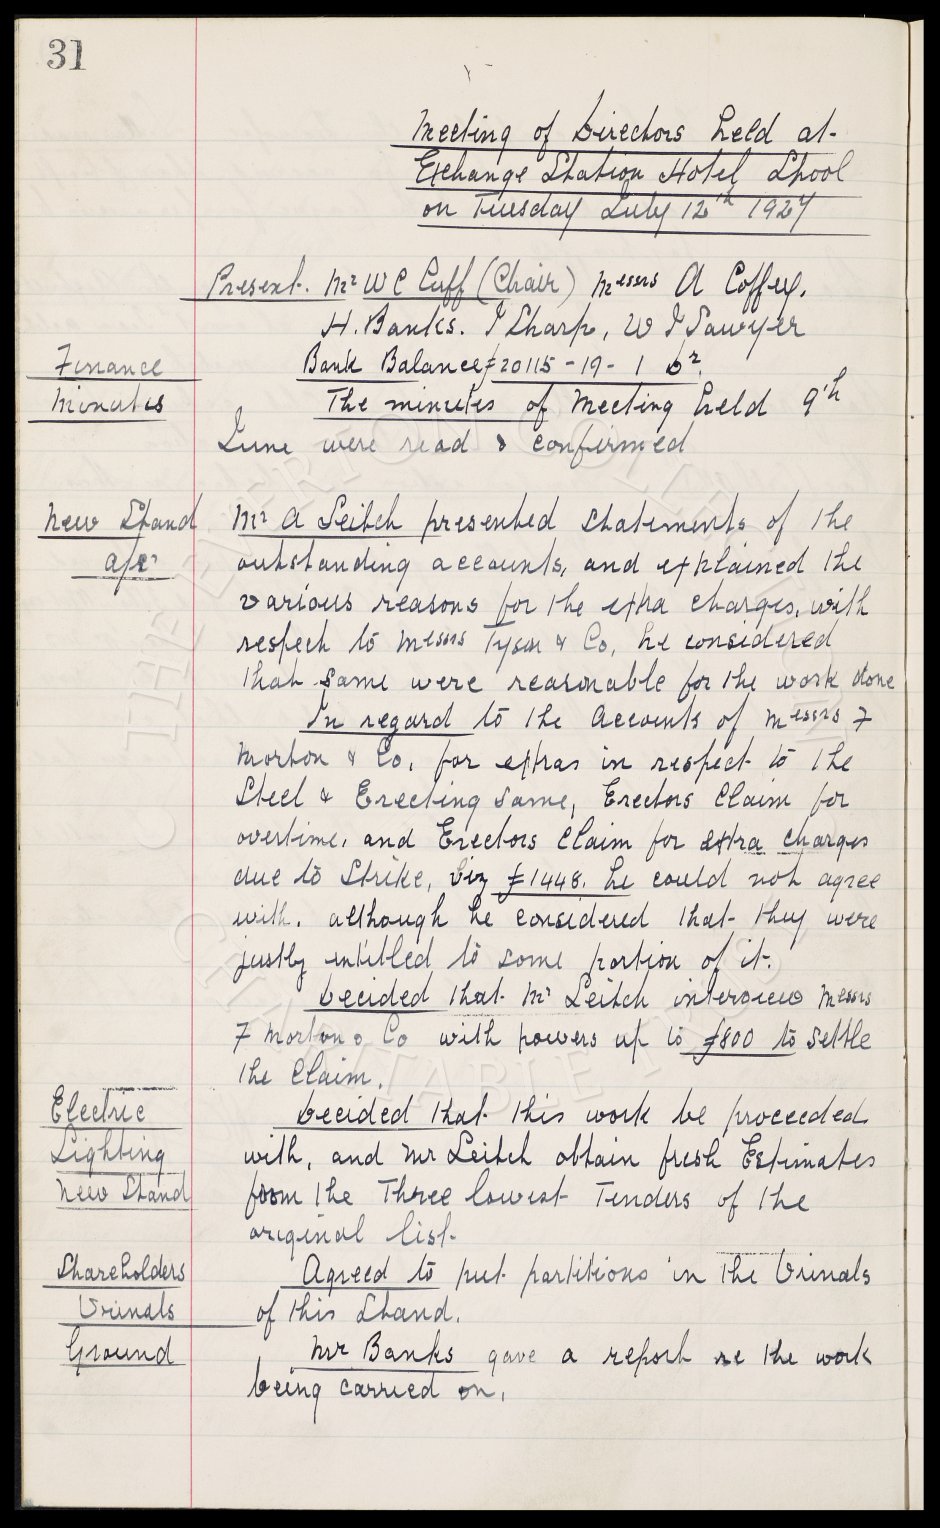 31
Meeting of Directors held at
Exchange Station Hotel Lpool
on Tuesday July 12th 1927
Present. Mr W C Cuff (Chair) Messrs A Coffey,
H. Banks. J Sharp, W J Sawyer
Finance Bank Balance £20115-19-1 Dr.
Minutes The minutes of Meeting held 9th
June were read & confirmed
New Stand Mr A Leitch presented statements of the
a/cs outstanding accounts, and explained the
various reasons for the extra charges, with
respect to Messrs Tyson & Co, he considered
that same were reasonable for the work done
In regard to the Accounts of Messrs F
Morton & Co, for extras in respect to the
Steel & Erecting same, Erectors Claim for
overtime, and Erectors Claim for extra charges
due to Strike, viz £1448. he could not agree
with. although he considered that they were
justly entitled to some portion of it.
Decided that Mr Leitch interview Messrs
F Morton & Co with powers up to £800 to settle
the Claim.
Electric Decided that this work be proceeded
Lighting with, and Mr Leitch obtain fresh Estimates
New Stand from the Three lowest Tenders of the
original list.
Shareholders Agreed to put partitions in the Urinals
Urinals of this Stand.
Ground Mr Banks gave a report re the work
being carried on.
THE EVERTON COLLECTION
CHARITABLE TRUST